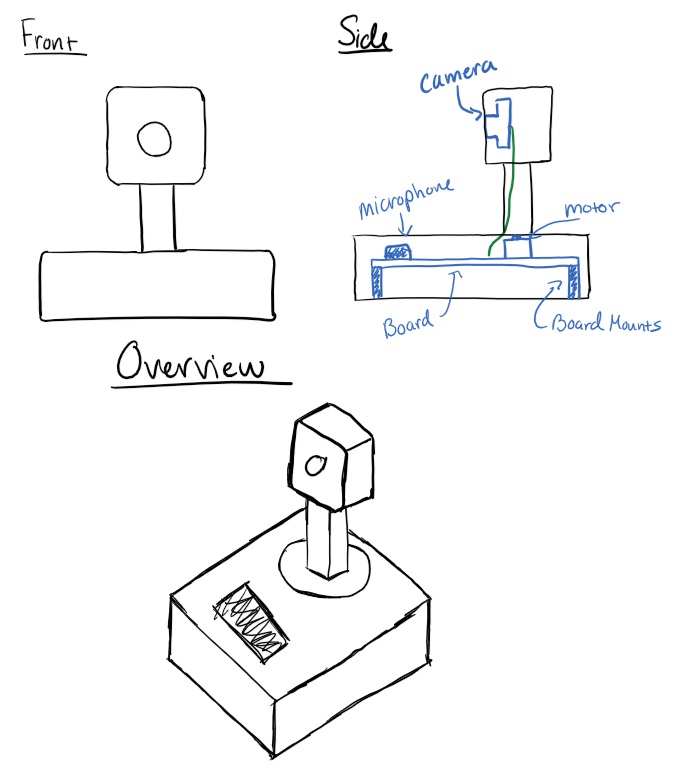 Front
Side
camera
microphone
motor
Board
Board Mounts
Overview